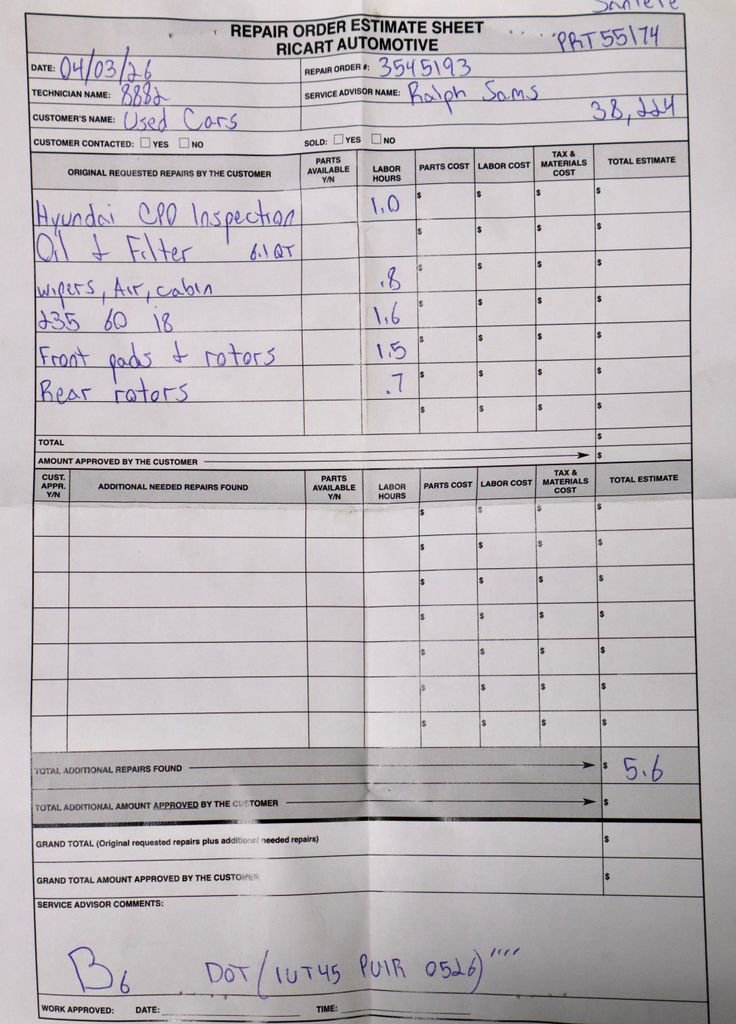 Santete
REPAIR ORDER ESTIMATE SHEET
RICART AUTOMOTIVE
PRT55174
DATE: 04/03/26
REPAIR ORDER #: 3545193
TECHNICIAN NAME: 8882
SERVICE ADVISOR NAME: Ralph Sams
CUSTOMER'S NAME: Used Cars
38,224
CUSTOMER CONTACTED: YES NO
SOLD: YES NO
ORIGINAL REQUESTED REPAIRS BY THE CUSTOMER PARTS AVAILABLE Y/N LABOR HOURS PARTS COST LABOR COST TAX & MATERIALS COST TOTAL ESTIMATE
Hyundai CPO Inspection 1.0 $ $ $ $
Oil & Filter 6.1 QT $ $ $ $
wipers, Air, cabin .8 $ $ $ $
235 60 18 1.6 $ $ $ $
Front pads & rotors 1.5 $ $ $ $
Rear rotors .7 $ $ $ $
$ $ $ $
TOTAL $
AMOUNT APPROVED BY THE CUSTOMER $
CUST. APPR. Y/N ADDITIONAL NEEDED REPAIRS FOUND PARTS AVAILABLE Y/N LABOR HOURS PARTS COST LABOR COST TAX & MATERIALS COST TOTAL ESTIMATE
$ $ $ $
$ $ $ $
$ $ $ $
$ $ $ $
$ $ $ $
$ $ $ $
$ $ $ $
TOTAL ADDITIONAL REPAIRS FOUND $ 5.6
TOTAL ADDITIONAL AMOUNT APPROVED BY THE CUSTOMER $
GRAND TOTAL (Original requested repairs plus additional needed repairs) $
GRAND TOTAL AMOUNT APPROVED BY THE CUSTOMER $
SERVICE ADVISOR COMMENTS:
B6 DOT (1UT45 PUIR 0526) ''''
WORK APPROVED: DATE: TIME: